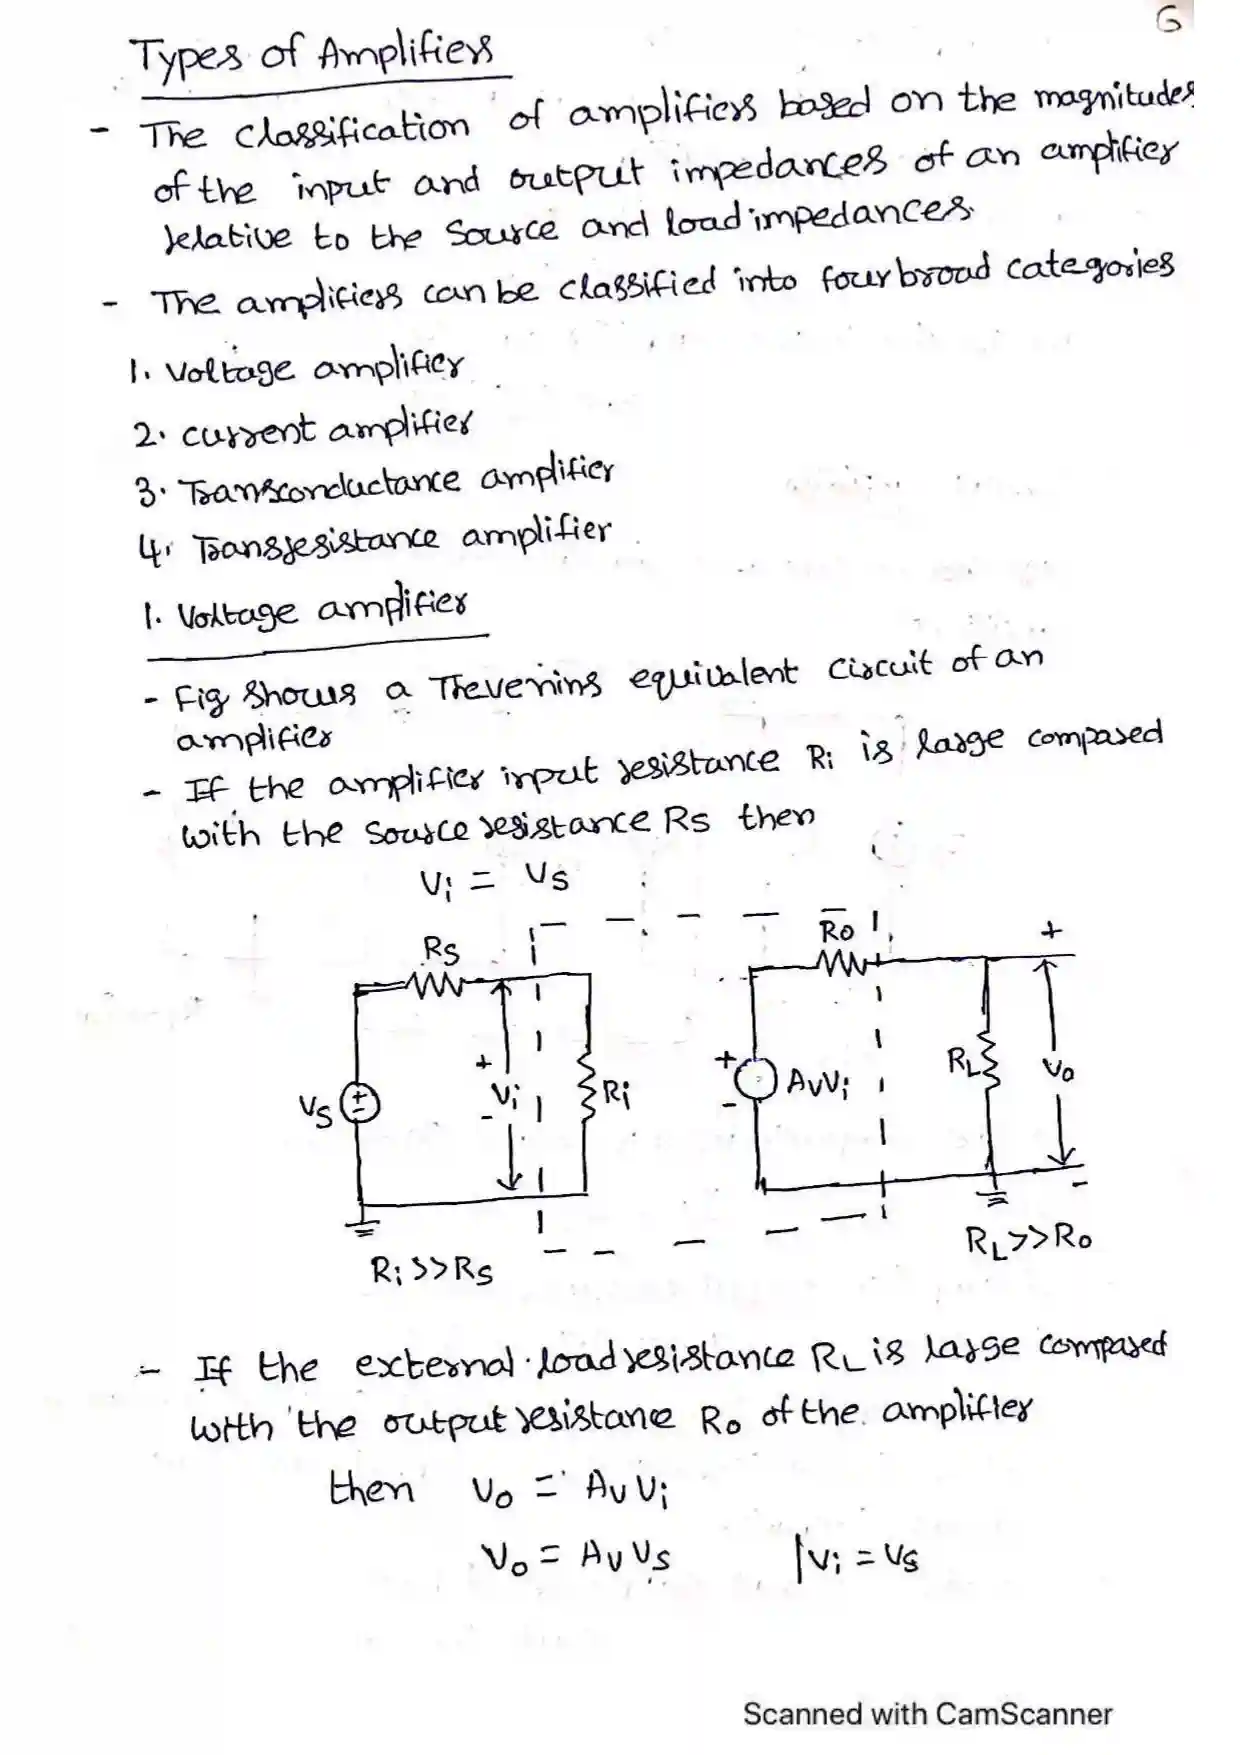 G
Types of Amplifiers
- The classification of amplifiers based on the magnitudes
of the input and output impedances of an amplifier
relative to the source and load impedances.
- The amplifiers can be classified into four broad categories
1. Voltage amplifier
2. current amplifier
3. Transconductance amplifier
4. Transresistance amplifier
1. Voltage amplifier
- Fig shows a Thevenins equivalent circuit of an
amplifier
- If the amplifier input resistance Ri is large compared
with the source resistance Rs then
Vi = Vs
Rs
Ro
+
Vs
+
-
+
Vi
-
Ri
+
-
AvVi
RL
Vo
-
Ri >> Rs
RL >> Ro
- If the external load resistance RL is large compared
with the output resistane Ro of the amplifier
then Vo = Av Vi
Vo = Av Vs | Vi = Vs
Scanned with CamScanner